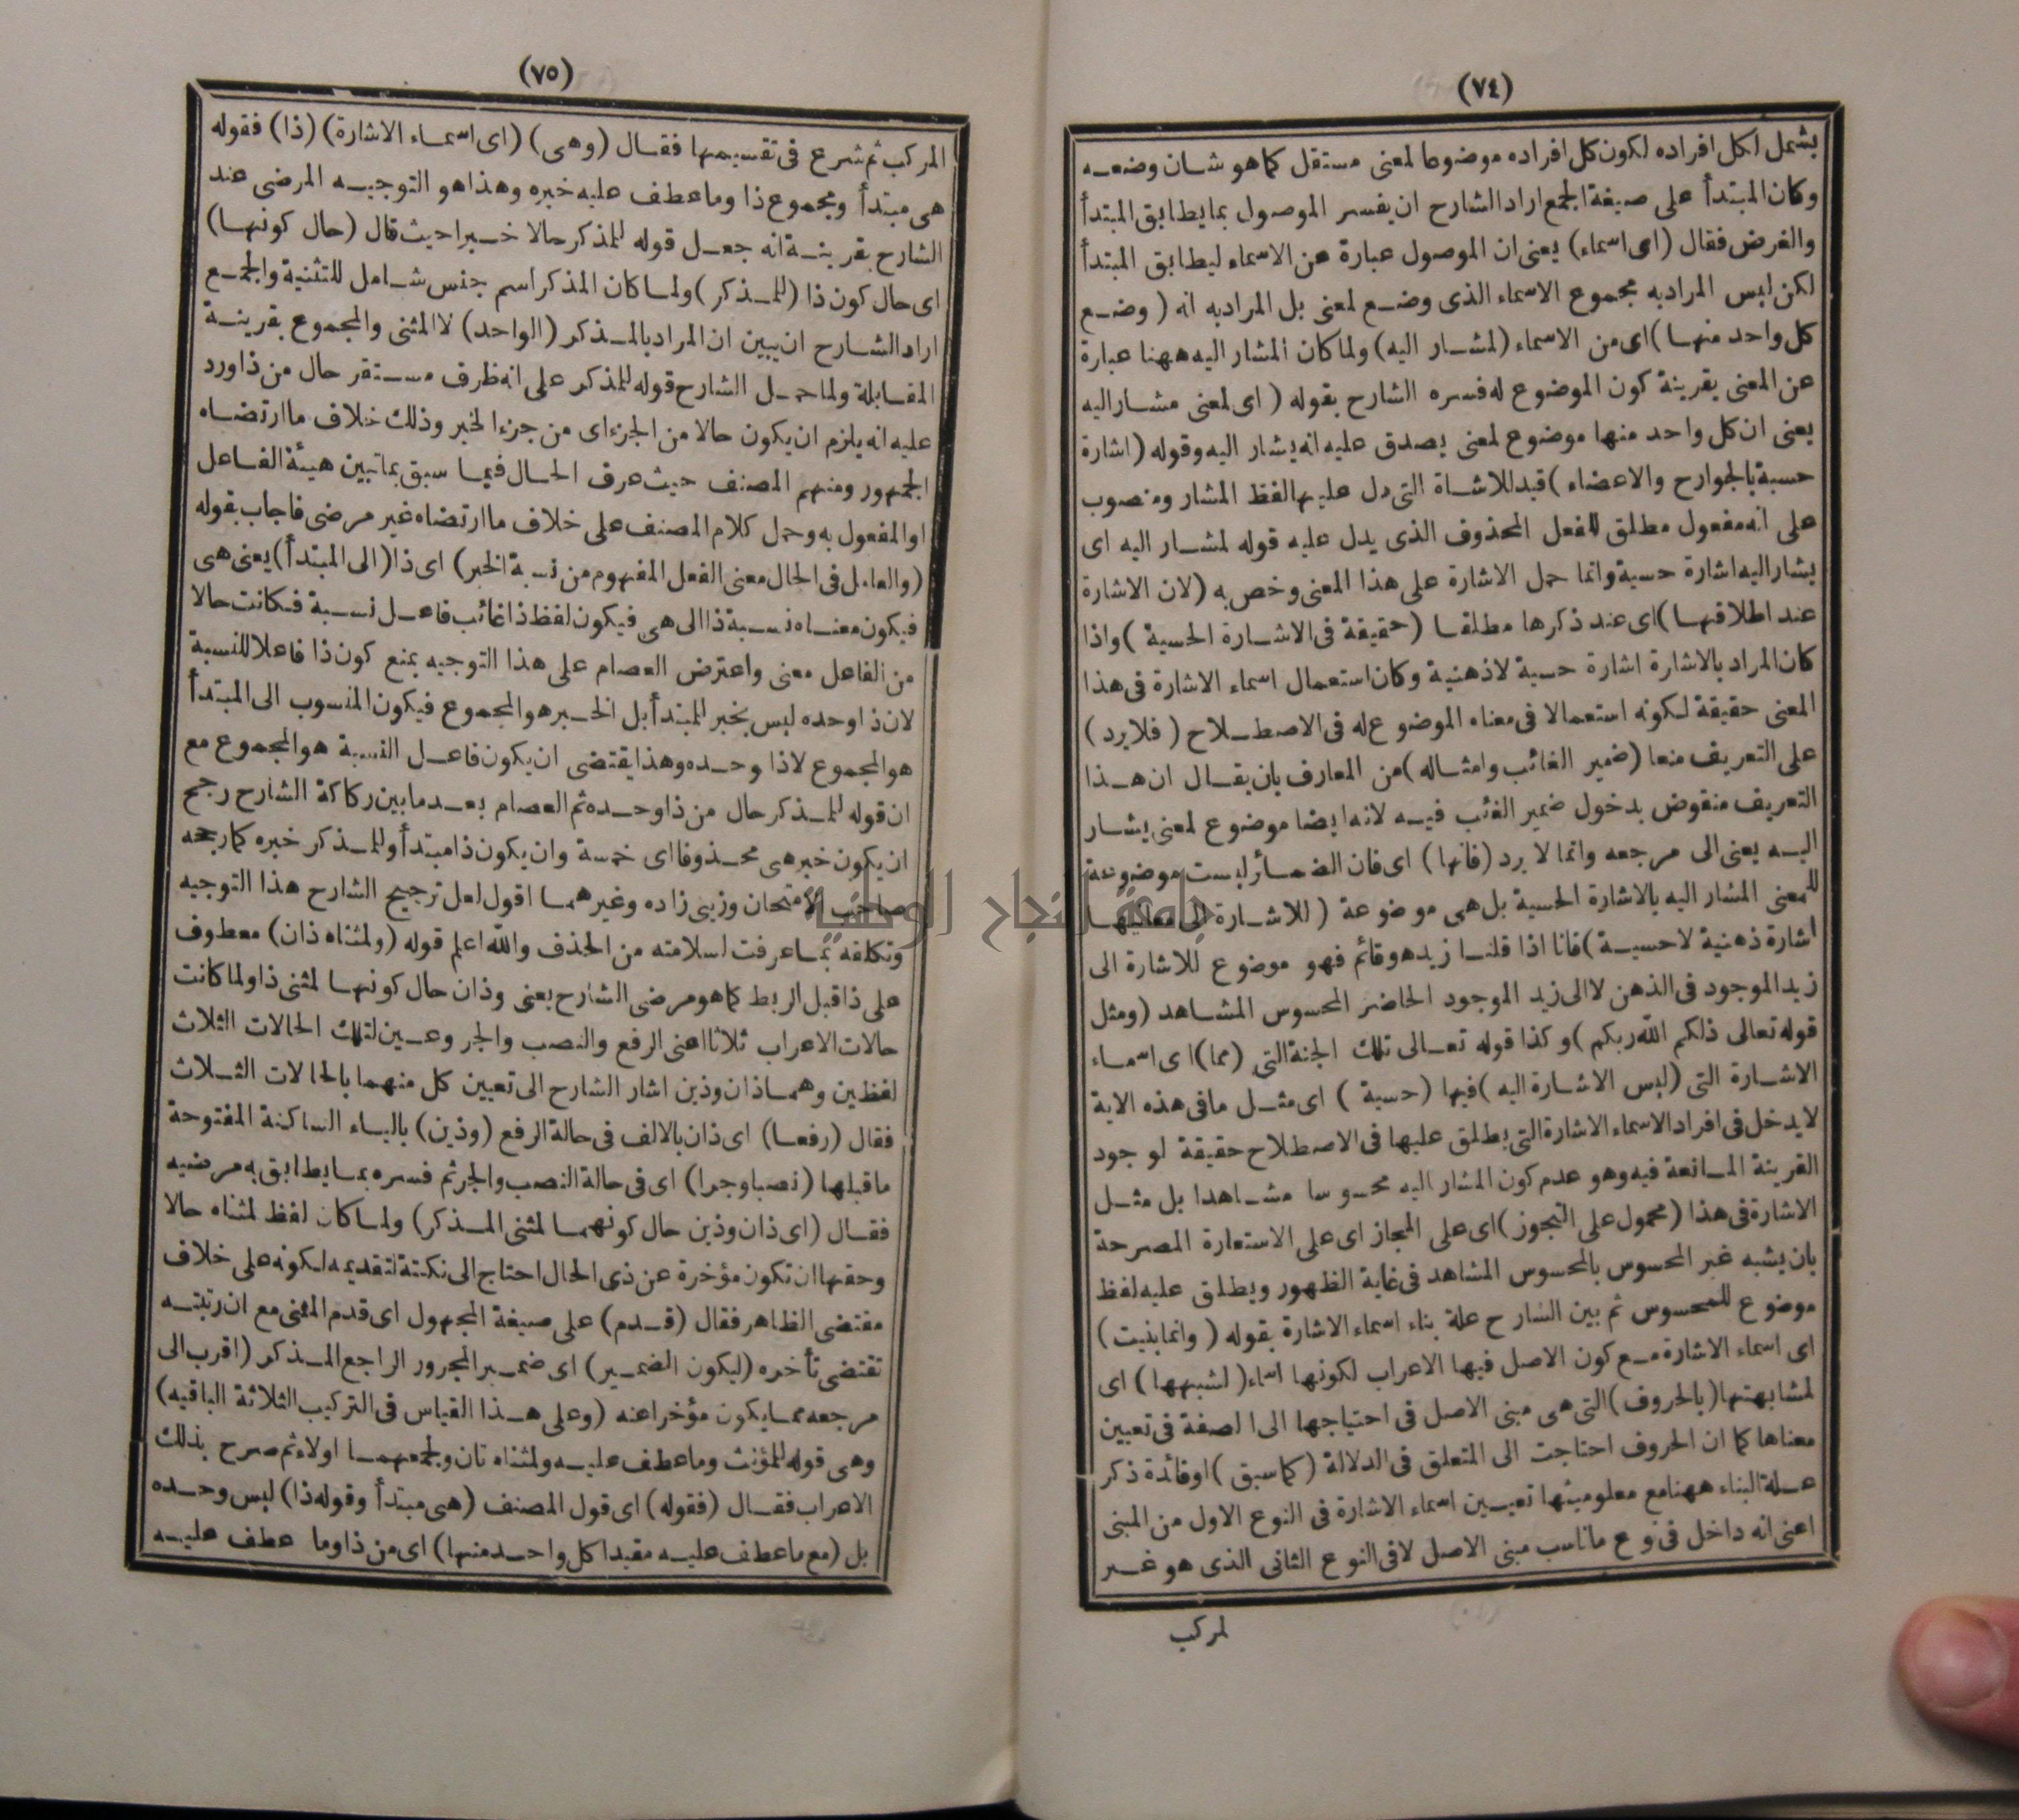 (٧٤)
يشمل لكل افراده لكون كل افراده موضوعا لمعنى مستقل كما هو شان وضعه
وكان المبتدأ على صيغة الجمع اراد الشارح ان يفسر الموصول بما يطابق المبتدأ
والغرض فقال (اى اسماء) يعنى ان الموصول عبارة عن الاسماء ليطابق المبتدأ
لكن ليس المراد به مجموع الاسماء الذى وضع لمعنى بل المراد به انه (وضع
كل واحد منها) اى من الاسماء (لمشار اليه) ولما كان المشار اليه ههنا عبارة
عن المعنى بقرينة كون الموضوع له فسره الشارح بقوله (اى لمعنى مشار اليه
يعنى ان كل واحد منها موضوع لمعنى يصدق عليه انه يشار اليه وقوله (اشارة
حسية بالجوارح والاعضاء) قيد للاشاة التى دل عليها لفظ المشار ومنصوب
على انه مفعول مطلق للفعل المحذوف الذى يدل عليه قوله لمشار اليه اى
يشار اليه اشارة حسية وانما حمل الاشارة على هذا المعنى وخص به (لان الاشارة
عند اطلاقها) اى عند ذكرها مطلقا (حقيقة فى الاشارة الحسية) واذا
كان المراد بالاشارة اشارة حسية لا ذهنية وكان استعمال اسماء الاشارة فى هذا
المعنى حقيقة لكونه استعمالا فى معناه الموضوع له فى الاصطلاح (فلا يرد)
على التعريف منعا (ضمير الغائب وامثاله) من المعارف بان يقال ان هذا
التعريف منقوض بدخول ضمير الغئب فيه لانه ايضا موضوع لمعنى يشار
اليه يعنى الى مرجعه وانما لا يرد (فانها) اى فان الضمائر ليست موضوعة
للمعنى المشار اليه بالاشارة الحسية بل هى موضوعة (للاشارة الى معانيها
اشارة ذهنية لا حسية) فانا اذا قلنا زيد هو قائم فهو موضوع للاشارة الى
زيد الموجود فى الذهن لا الى زيد الموجود الحاضر المحسوس المشاهد (ومثل
قوله تعالى ذلكم الله ربكم) وكذا قوله تعالى تلك الجنة التى (مما) اى اسماء
الاشارة التى (ليس الاشارة اليه) فيها (حسية) اى مثل ما فى هذه الاية
لا يدخل فى افراد الاسماء الاشارة التى يطلق عليها فى الاصطلاح حقيقة لوجود
القرينة المانعة فيه وهو عدم كون المشار اليه محسوسا مشاهدا بل مثل
الاشارة فى هذا (محمول على التجوز) اى على المجاز اى على الاستعارة المصرحة
بان يشبه غير المحسوس بالمحسوس المشاهد فى غاية الظهور ويطلق عليه لفظ
موضوع للمحسوس ثم بين الشارح علة بناء اسماء الاشارة بقوله (وانما بنيت)
اى اسماء الاشارة مع كون الاصل فيها الاعراب لكونها اسماء (لشبهها) اى
لمشابهتها (بالحروف) التى هى مبنى الاصل فى احتياجها الى الصفة فى تعيين
معناها كما ان الحروف احتاجت الى المتعلق فى الدلالة (كما سبق) او فائدة ذكر
علة البناء ههنا مع معلوميتها تعيين اسماء الاشارة فى النوع الاول من المبنى
اعنى انه داخل فى نوع ما ناسب مبنى الاصل لا فى النوع الثانى الذى هو غير
لمركب
(٧٥)
المركب ثم شرع فى تقسيمها فقال (وهى) (اى اسماء الاشارة) (ذا) فقوله
هى مبتدأ ومجموع ذا وما عطف عليه خبره وهذا هو التوجيه المرضى عند
الشارح بقرينة انه جعل قوله للمذكر حالا خبرا حيث قال (حال كونها)
اى حال كون ذا (للمذكر) ولما كان المذكر اسم جنس شامل للتثنية والجمع
اراد الشارح ان يبين ان المراد بالمذكر (الواحد) لا المثنى والمجموع بقرينة
المقابلة ولما حمل الشارح قوله للمذكر على انه ظرف مستقر حال من ذا ورد
عليه انه يلزم ان يكون حالا من الجزء اى من جزء الخبر وذلك خلاف ما ارتضاه
الجمهور ومنهم المصنف حيث عرف الحال فيما سبق بما تبين هيئة الفاعل
او المفعول به وحمل كلام المصنف على خلاف ما ارتضاه غير مرضى فاجاب بقوله
(والعامل فى الحال معنى الفعل المفهوم من نسبة الخبر) اى ذا (الى المبتدأ) يعنى هى
فيكون معناه نسبة ذا الى هى فيكون لفظ ذا غائب فاعل نسبة فكانت حالا
من الفاعل معنى واعترض العصام على هذا التوجيه بمنع كون ذا فاعلا للنسبة
لان ذا وحده ليس بخبر للمبتدأ بل الخبر هو المجموع فيكون المنسوب الى المبتدأ
هو المجموع لا ذا وحده وهذا يقتضى ان يكون فاعل النسبة هو المجموع مع
ان قوله للمذكر حال من ذا وحده ثم العصام بعد ما بين ركاكة الشارح رجح
ان يكون خبر هى محذوفا اى خمسة وان يكون ذا مبتدأ وللمذكر خبره كما رجحه
صاحب الامتحان وزينى زاده وغيرهما اقول لعل ترجيح الشارح هذا التوجيه
وتكلفه بما عرفت لسلامته من الحذف والله اعلم قوله (ولمثناه ذان) معطوف
على ذا قبل الربط كما هو مرضى الشارح يعنى وذان حال كونها لمثنى ذا ولما كانت
حالات الاعراب ثلاثا اعنى الرفع والنصب والجر وعين لتلك الحالات الثلاث
لفظين وهما ذان وذين اشار الشارح الى تعيين كل منهما بالحالات الثلاث
فقال (رفعا) اى ذان بالالف فى حالة الرفع (وذين) بالياء الساكنة المفتوحة
ما قبلها (نصبا وجرا) اى فى حالة النصب والجر ثم فسره بما يطابق به مرضيه
فقال (اى ذان وذين حال كونهما لمثنى المذكر) ولما كان لفظ لمثناه حالا
وحقها ان تكون مؤخرة عن ذى الحال احتاج الى نكتة لتقديمه لكونه على خلاف
مقتضى الظاهر فقال (قدم) على صيغة المجهول اى قدم المثنى مع ان رتبته
تقتضى تأخره (ليكون الضمير) اى ضمير المجرور الراجع المذكر (اقرب الى
مرجعه مما يكون مؤخرا عنه (وعلى هذا القياس فى التركيب الثلاثة الباقيه)
وهى قوله للمؤنث وما عطف عليه ولمثناه تان ولجمعهما اولاء ثم صرح بذلك
الاعراب فقال (فقوله) اى قول المصنف (هى مبتدأ وقوله ذا) ليس وحده
بل (مع ما عطف عليه مقيدا كل واحد منها) اى من ذا وما عطف عليه
جامعة النجاح الوطنية